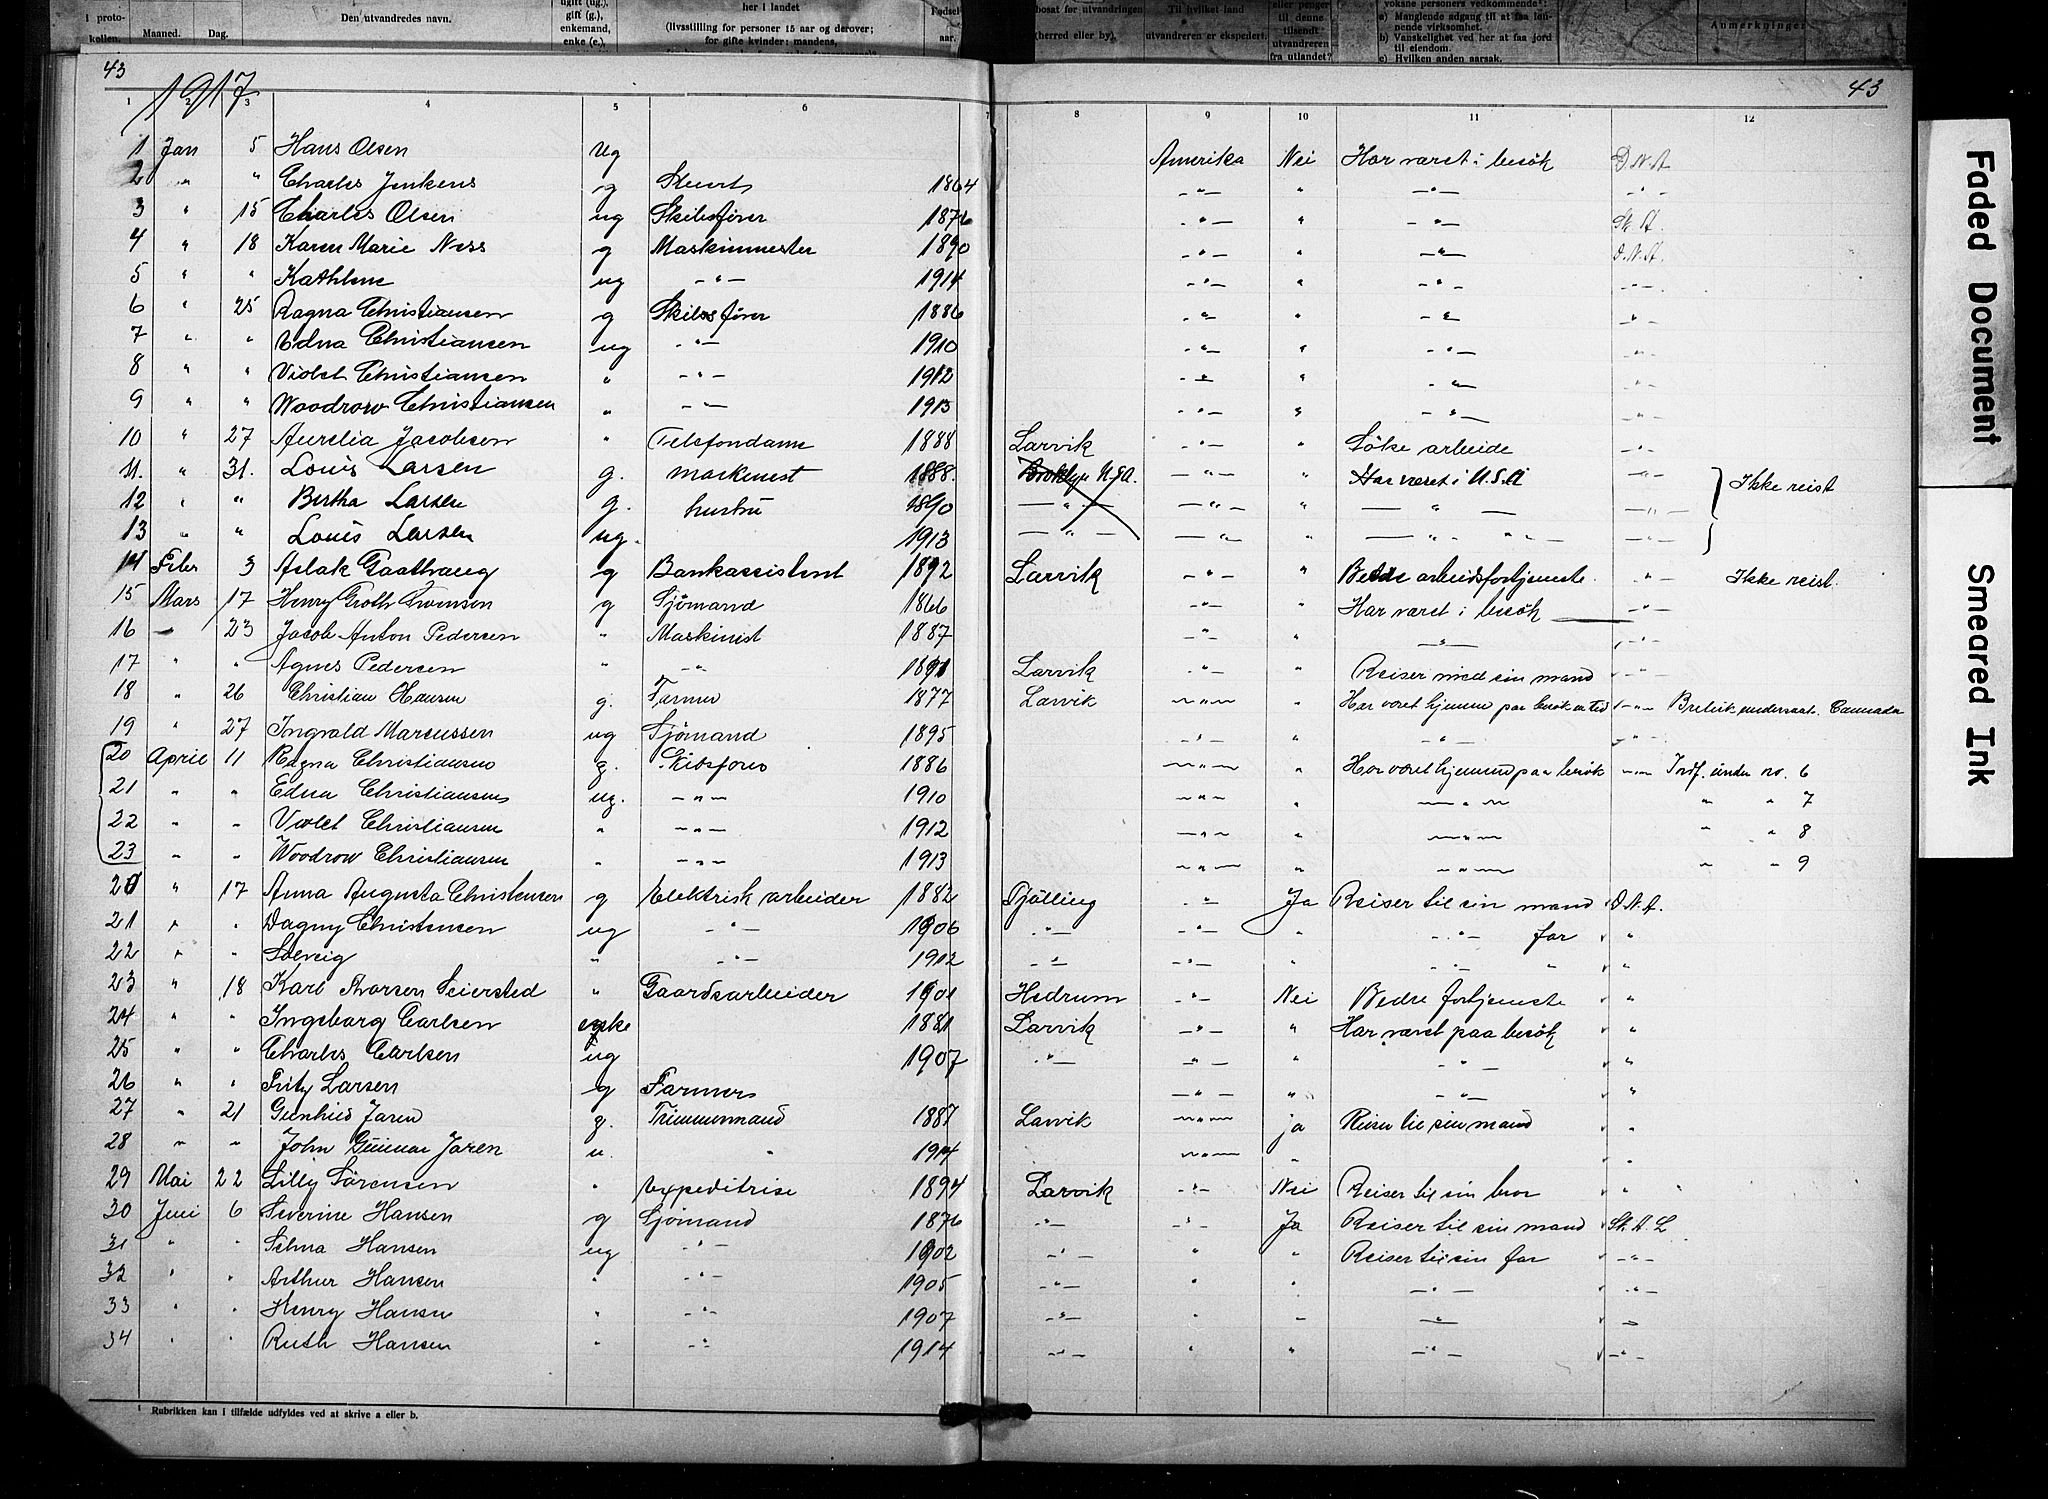 i proto-
kollen.
Maaned. Dag.
Den utvandredes navn.
ugift (ug.),
gift (g.),
enkemand,
enke (e.),
her i landet
(livsstilling for personer 15 aar og derover;
for gifte kvinder: mandens,
Fødsels-
aar.
bosat før utvandringen
(herred eller by),
Til hvilket land
utvandreren er ekspedert.
eller penger
til denne
tilsendt
utvandreren
fra utlandet?
voksne personers vedkommende¹:
a) Manglende adgang til at faa løn-
nende virksomhet.
b) Vanskelighet ved her at faa jord
til eiendom.
c) Hvilken anden aarsak.
Anmerkninger
43 43
1917
1 2 3 4 5 6 7 8 9 10 11 12
1 Jan 5 Hans Olsen ug Amerika Nei Har været i besök D.N.A
2 " " Charles Jenkens g Stuert 1864 -"- " -"- -"-
3 " 15 Charles Olsen ug Skibsfører 1876 -"- " -"- Sk. A.
4 " 18 Karen Marie Ness g Maskinmester 1890 -"- " -"- D.N.A.
5 " " Kathlene ug -"- 1914 -"- " -"- -"-
6 " 25 Ragna Christiansen g Skibsfører 1886 -"- " -"- -"-
7 " " Edna Christiansen ug -"- 1910 -"- " -"- -"-
8 " " Violet Christiansen " -"- 1912 -"- " -"- -"-
9 " " Woodrow Christiansen " -"- 1913 -"- " -"- -"-
10 " 27 Aurelia Jacobsen " Telefondame 1888 Larvik -"- " Söke arbeide -"-
11. " 31. Louis Larsen g. maskinist 1888. Broklyn U.S.A. -"- " Har været i U.S.A -"- Ikke reist
12 " " Bertha Larsen g. hustru 1890 -"- -"- " -"- -"-
13 " " Louis Larsen ug. 1913 -"- -"- " -"- -"-
14 Febr 3 Aslak Gaathaug g Bankassistent 1892 Larvik -"- " Bedre arbeidsfortjeneste. -"- Ikke reist.
15 Mars 17 Henry Groth Svensen g Sjömand 1866 -"- " Har været i besök -"-
16 - 23 Jacob Anton Pedersen " Maskinist 1887 -"- " -"- -"-
17 " " Agnes Pedersen " -"- 1891 Larvik -"- " Reiser med sin mand -"-
18 " 26 Christian Hansen g. Farmer 1877 Larvik -"- " Har været hjemme paa besök en tid -"- Britisk undersaat. Cannada
19 " 27 Ingvald Marcussen ug Sjömand 1895 -"- " -"- -"-
20 April 11 Ragna Christiansen g. Skibsfører 1886 -"- " Har været hjemme paa besök -"- Indf. under no. 6
21 " " Edna Christiansen ug. -"- 1910 -"- " -"- " " 7
22 " " Violet Christiansen " -"- 1912 -"- " -"- " " 8
23 " " Woodrow Christiansen " -"- 1913 -"- " -"- " " 9
20 " 17 Anna Augusta Christensen g Elektrisk arbeider 1882 Tjölling -"- Ja Reiser til sin mand D.N.A.
21 " " Dagny Christensen ug -"- 1906 -"- -"- " -"- far "
22 " " Solveig " -"- 1912 -"- -"- " " " "
23 " 18 Karl Thorsen Seiersted " Gaardsarbeider 1901 Hedrum -"- Nei Bedre fortjeneste "
24 " " Ingeborg Carlsen enke 1881 Larvik -"- " Har været paa besök "
25 " " Charles Carlsen ug 1907 -"- -"- " -"- "
26 " " Fritz Larsen g Farmers -"- " -"- "
27 " 21 Gunhild Jaren g. Tömmermand 1887 Larvik -"- ja Reiser til sin mand "
28 " " John Gunnar Jaren u. " 1914 -"- " "
29 Mai 22 Lilly Sörensen " Expeditrise 1894 Larvik -"- Nei Reiser til sin bror "
30 Juni 6 Severine Hansen g Sjömand 1876 -"- -"- Ja Reiser til sin mand Sk. A. L
31 " " Selma Hansen ug -"- 1902 -"- " " Reiser til sin far -"-
32 " " Arthur Hansen " -"- 1905 -"- " " -"- -"-
33 " " Henry Hansen " -"- 1907 -"- " " -"- -"-
34 " " Ruth Hansen " -"- 1914 -"- " " -"- -"-
¹ Rubrikken kan i tilfælde udfyldes ved at skrive a eller b.
Faded Document
Smeared Ink